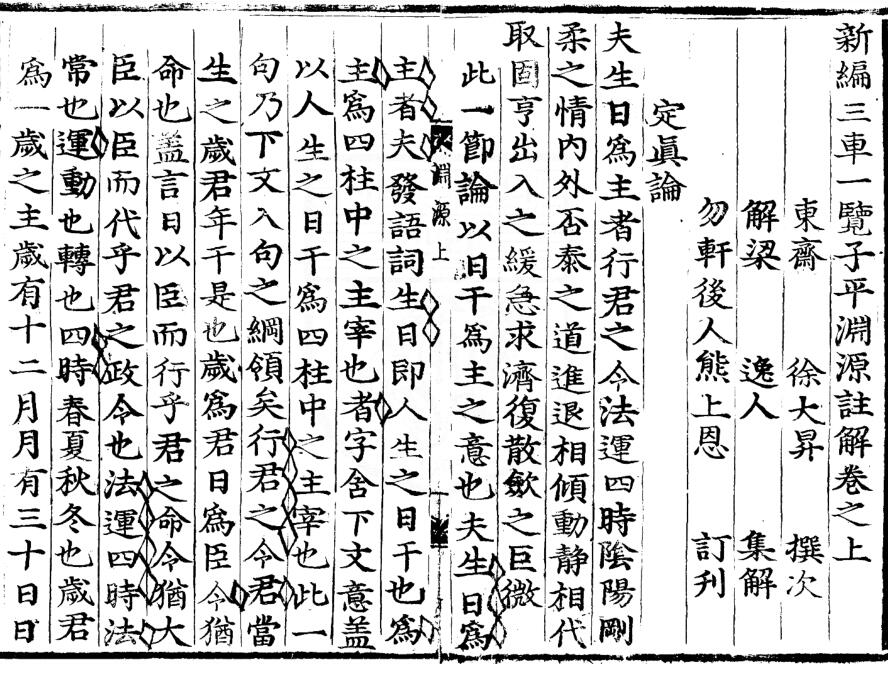 新編三車一覽子平淵源註解卷之上
東齋 徐大昇 撰次
解梁 逸人 集解
勿軒後人熊上恩 訂刋
定眞論
夫生日爲主者行君之令法運四時隂陽剛
柔之情內外否泰之道進退相傾動静相代
取固亨出入之緩急求濟復散斂之巨微
此一節論以日干爲主之意也夫生日爲
淵源上
主者夫發語詞生日即人生之日干也爲
主爲四柱中之主宰也者字含下文意盖
以人生之日干爲四柱中之主宰也此一
句乃下文入句之綱領矣行君之令君當
生之歲君年干是也歲爲君日爲臣令猶
命也盖言日以臣而行乎君之命令猶大
臣以臣而代乎君之政令也法運四時法
常也運動也轉也四時春夏秋冬也歲君
爲一歲之主歲有十二月月有三十日日